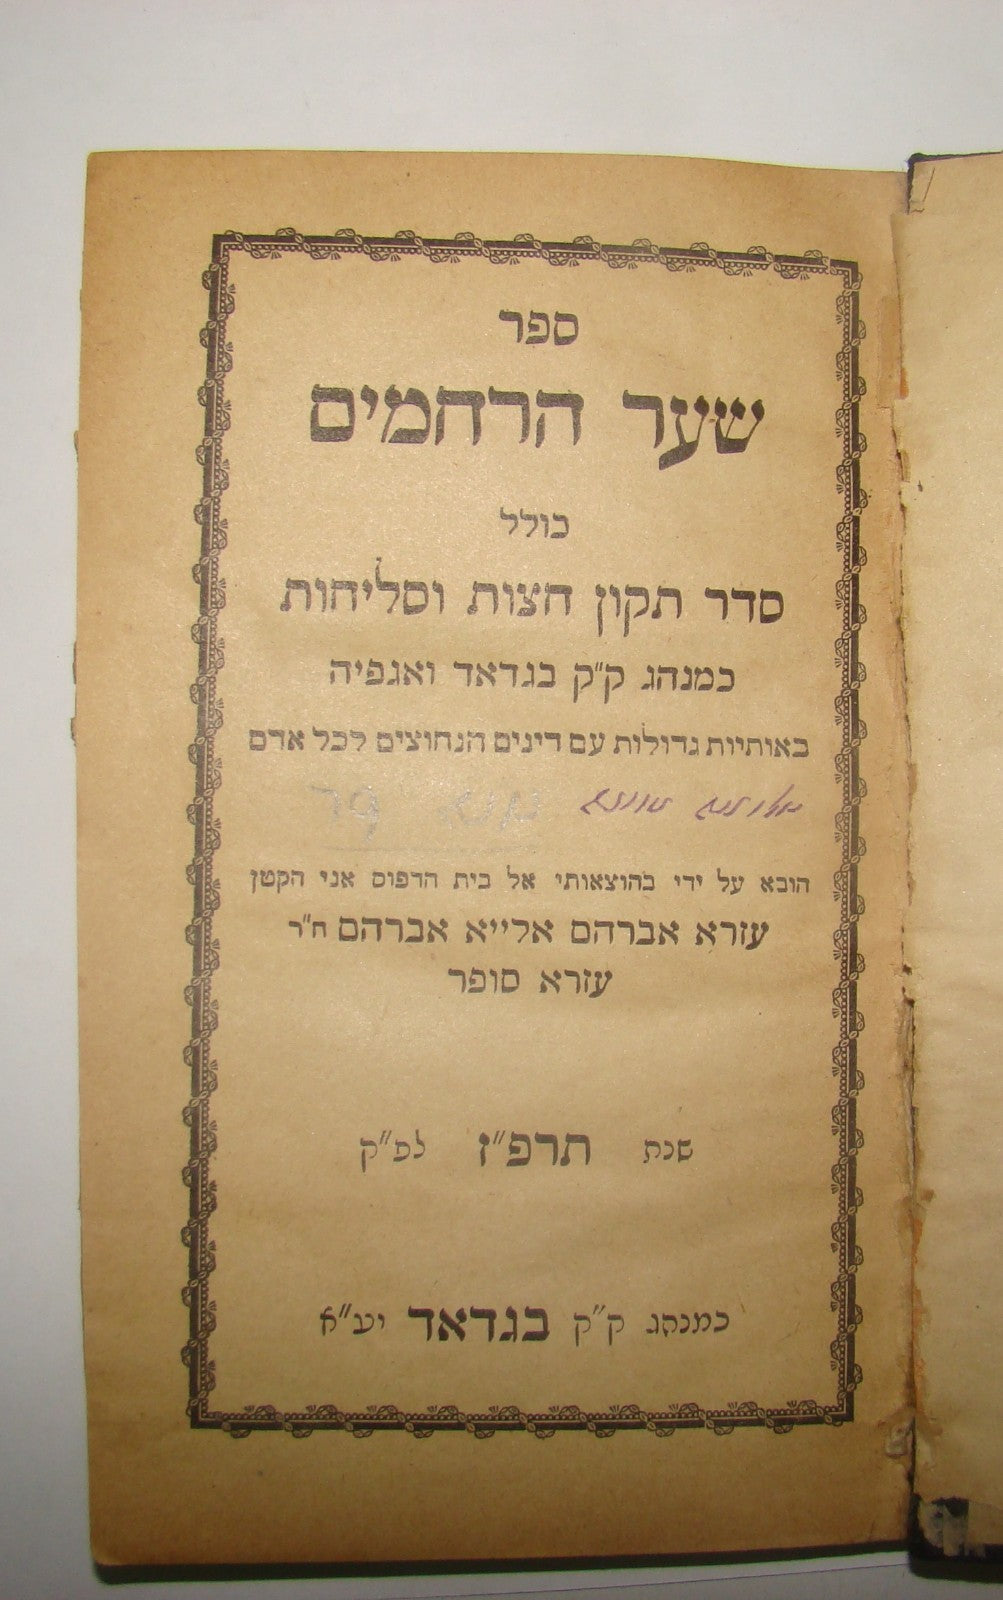 ספר
שער הרחמים
כולל
סדר תקון חצות וסליחות
כמנהג ק"ק בגדאד ואגפיה
באותיות גדולות עם דינים הנחוצים לכל אדם
הובא על ידי בהוצאותי אל בית הדפוס אני הקטן
עזרא אברהם אלייא אברהם ח"ר
עזרא סופר
שנת תרפ"ז לפ"ק
כמנהג ק"ק בגדאד יע"א